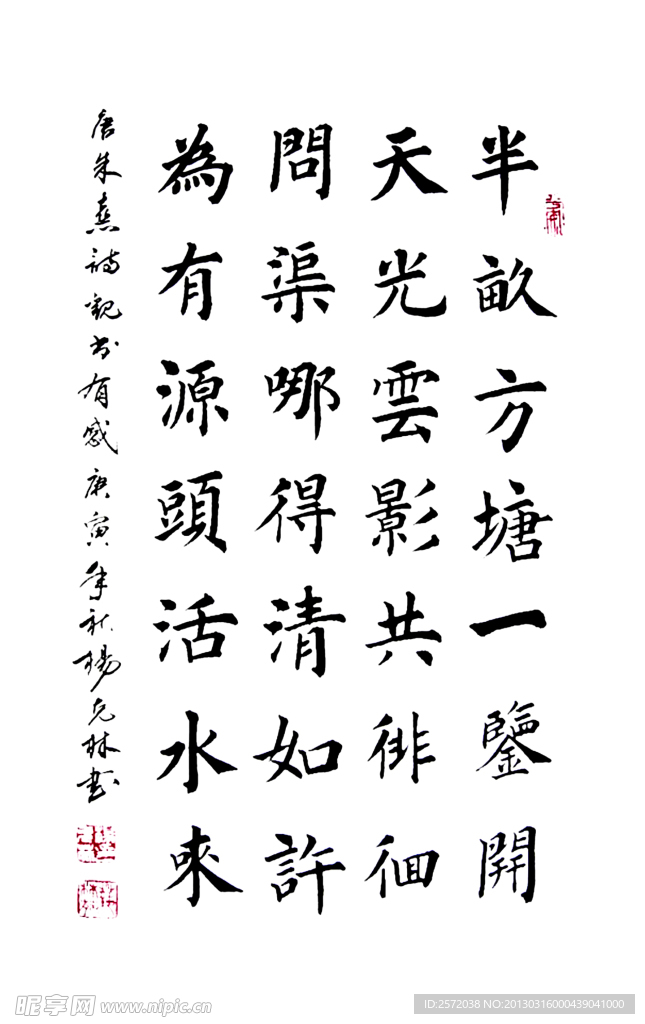 半畝方塘一鑒開
天光雲影共徘徊
問渠哪得清如許
為有源頭活水來
唐朱熹詩觀書有感庚寅年秋楊克林書
昵享网 www.nipic.cn
ID:2572038 NO:20130316000439041000